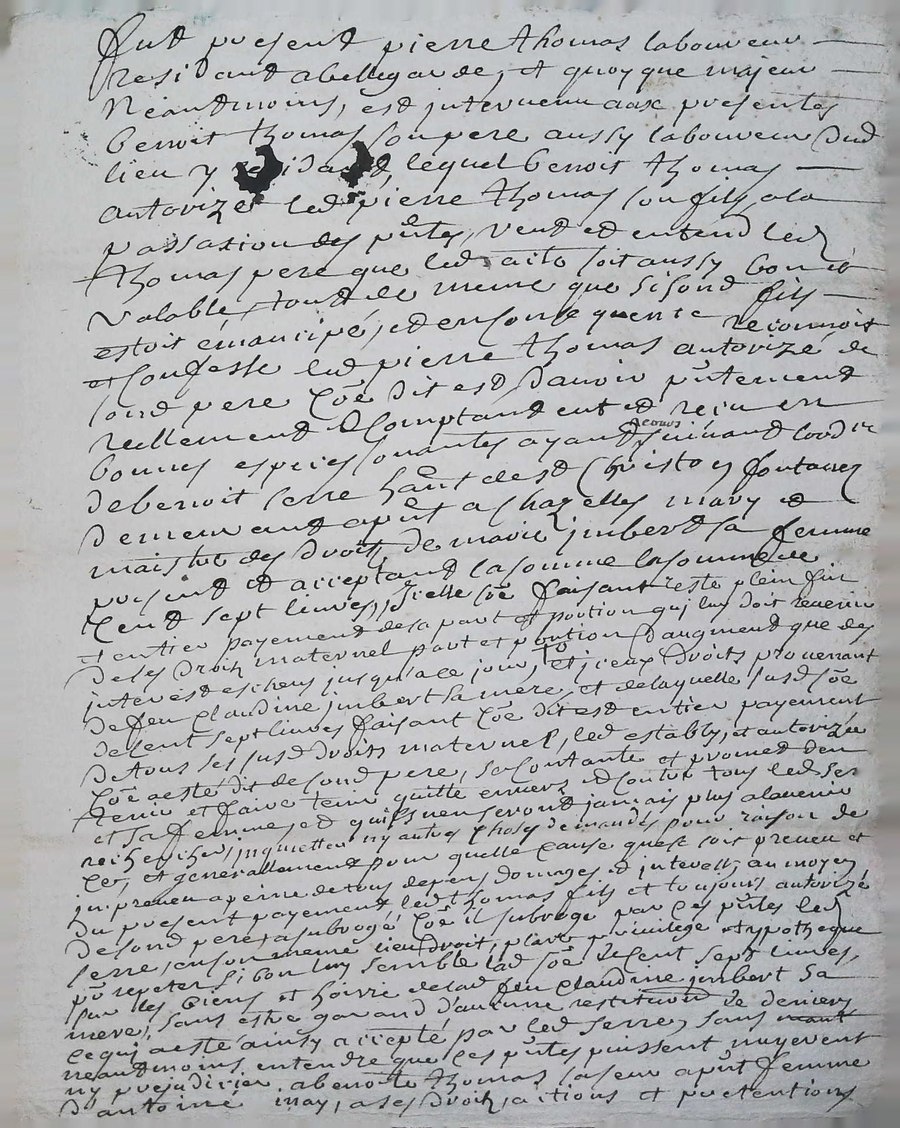 fut present pierre thomas laboureur
residant a bellegarde, et quoy que majeur
Neantmoins, est intervenu aux presentes
benoit thomas son pere aussy laboureur dud
lieu y lequel benoit thomas
autorize led pierre thomas son filz a la
passation des pntes, veut et entend led
thomas pere que led acte soit aussy bon et
valable, tout de meme que si sond fils
estoit émancipé, et en consequence reconnoit
et confesse led pierre thomas autorizé de
sond pere Coe dit est d'avoir pntement
reellement & comptant eut et reçu en
bonnes especes sonantes ayant cours suivant
de benoit serre
demeurant apnt a Chazelles mary et
maistre des droits de marie jmbert sa femme
present et acceptant la somme la somme de
Cent sept livres, d'icelle soe faisant reste plein fin
et entier payement de sa part et portion quj luy doit revenir
de ses droits maternel part et portion d'augment que des
interest escheus jusqu'a ce jour, et jceux droits provenant
de feu Claudine jmbert sa mere, et de laquelle susd soe
de Cent sept livres faisant Coe dit est entier payement
de tous ses susd droits maternel, led estably, et autorizé
Coe a esté dit de sond pere, se contante et promet d'en
tenir et faire tenir quitte envers et contre tous led serre
et sa femme, et qu'ils n'en seront jamais plus a l'avenir
recherchés, jnquiettes ny autre chose demandé pour raison de
ce, et generallement pour quelle cause que se soit preveu et
jnpreveu a peine de tous depens domages et interest, au moyen
du present payement, led thomas fils et toujours autorizé
de sond pere, a subrogé Coe il subroge par ces pntes led
serre, en son meme lieu droit, place privilege et hypotheque
pr repeter si bon luy semble lad soe de Cent sept livres,
sur les biens et hoirie de lad feu Claudine jmbert sa
mere, sans estre garand d'aucune restitution de deniers
ce qui a esté ainsy accepté par led serre, sans
neantmoins entendre que ces pntes puissent nuyrent
ny prejudicier a benoite thomas sa seur apnt femme
d'antoine may, a ses droits, actions et pretentions